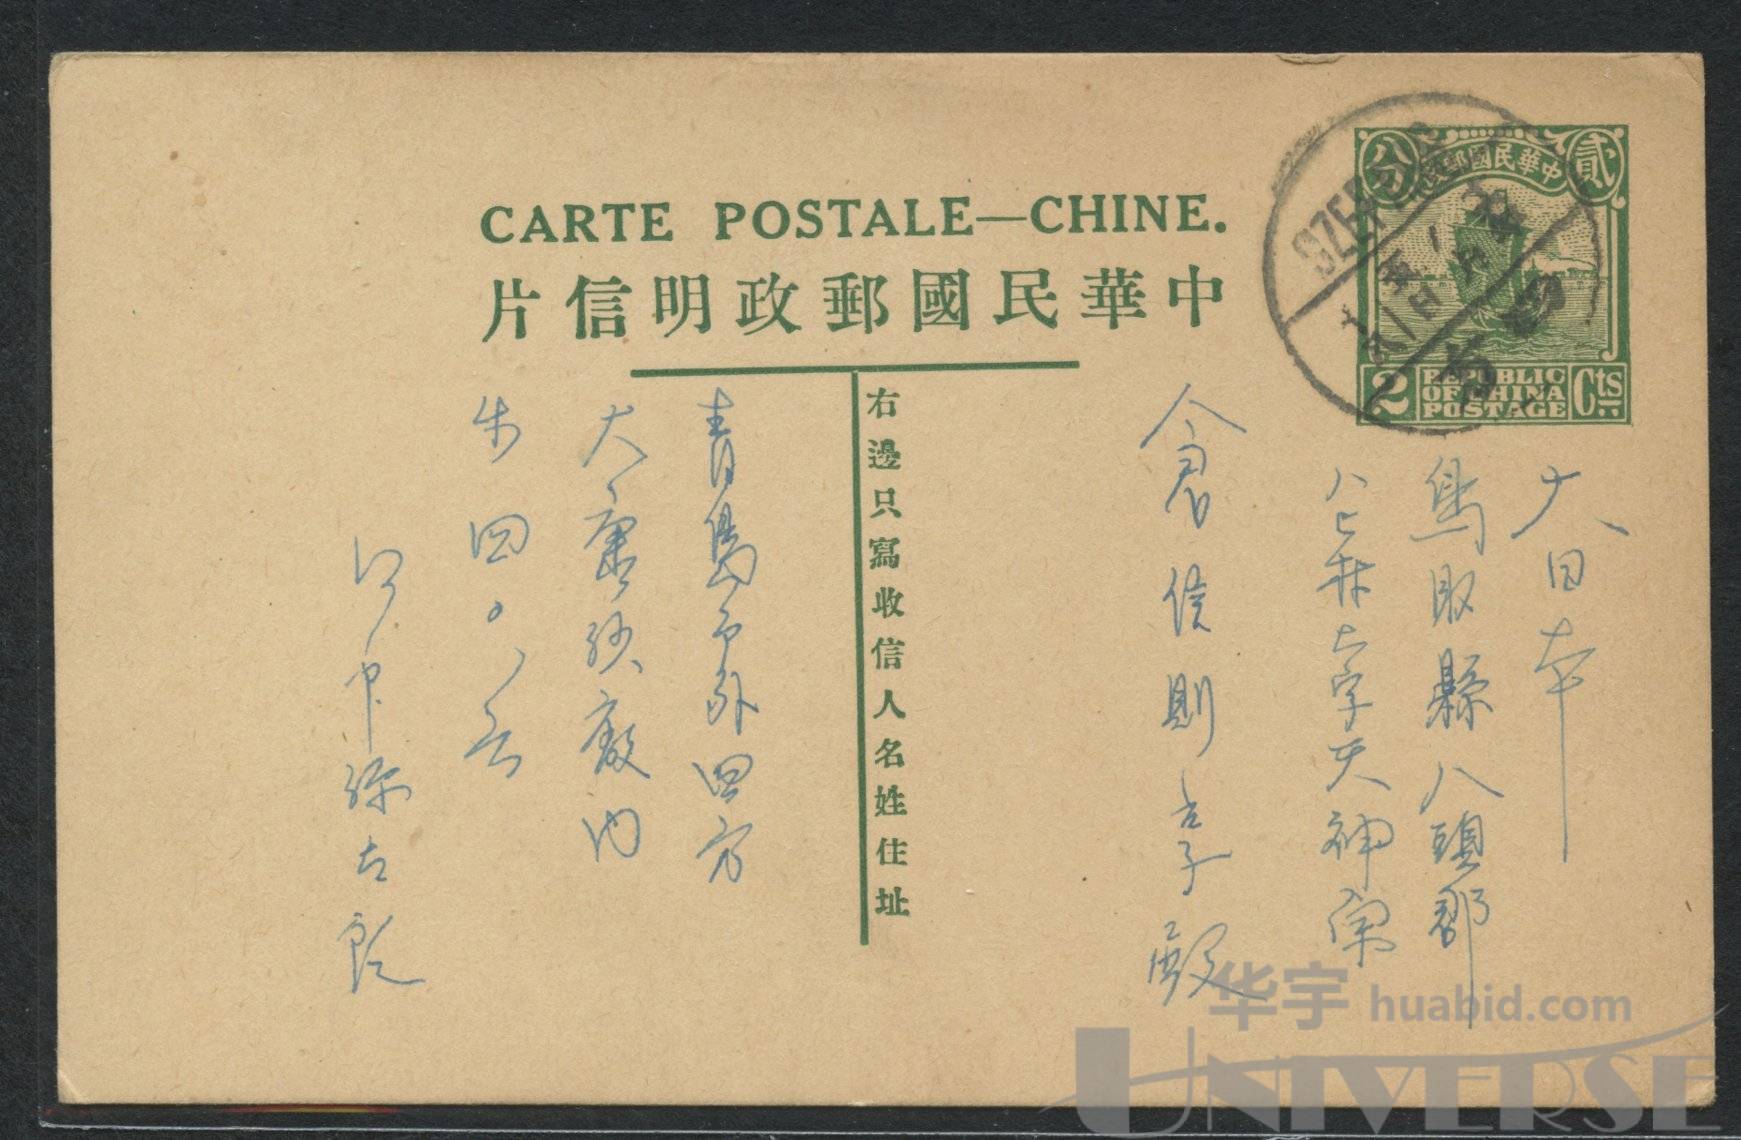 CARTE POSTALE—CHINE.
中華民國郵政明信片
中華民國郵政
貳
分
2 REPUBLIC OF CHINA POSTAGE Cts
SZEFANG
四方
右邊只寫收信人名姓住址
大日本
鳥取縣八頭郡
八上村大字天神原
倉信則吉殿
青島市外四方
大康紗廠內
四〇ノ
弥太郎
华宇 huabid.com
UNIVERSE